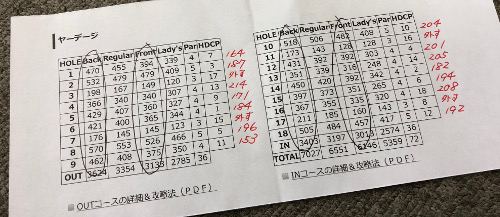 ヤーデージ
HOLE Back Regular Front Lady's Par HDCP
1 470 455 394 339 4 7 164
2 532 479 479 409 5 3 187
3 198 167 149 120 3 17 外す
4 366 340 340 307 4 13 214
5 429 407 360 327 4 9 171
6 421 400 344 4 1 184
7 176 145 145 123 3 15 外す
8 570 553 526 466 5 5 196
9 462 408 376 350 4 11 153
OUT 3624 3354 3133 2785 36
■OUTコースの詳細＆攻略法（PDF）
HOLE Back Regular Front Lady's Par HDCP
10 518 506 482 408 5 10 204
11 173 143 128 128 3 16 外す
12 431 392 392 4 2 201
13 351 339 316 248 4 14 205
14 450 420 392 342 4 4 182
15 397 373 351 265 4 6 194
16 367 355 335 4 18 208
17 211 185 160 143 3 8 外す
18 505 484 457 417 5 12 192
IN 3403 3197 3013 2574 36
TOTAL 7027 6551 6146 5359 72
■INコースの詳細＆攻略法（PDF）